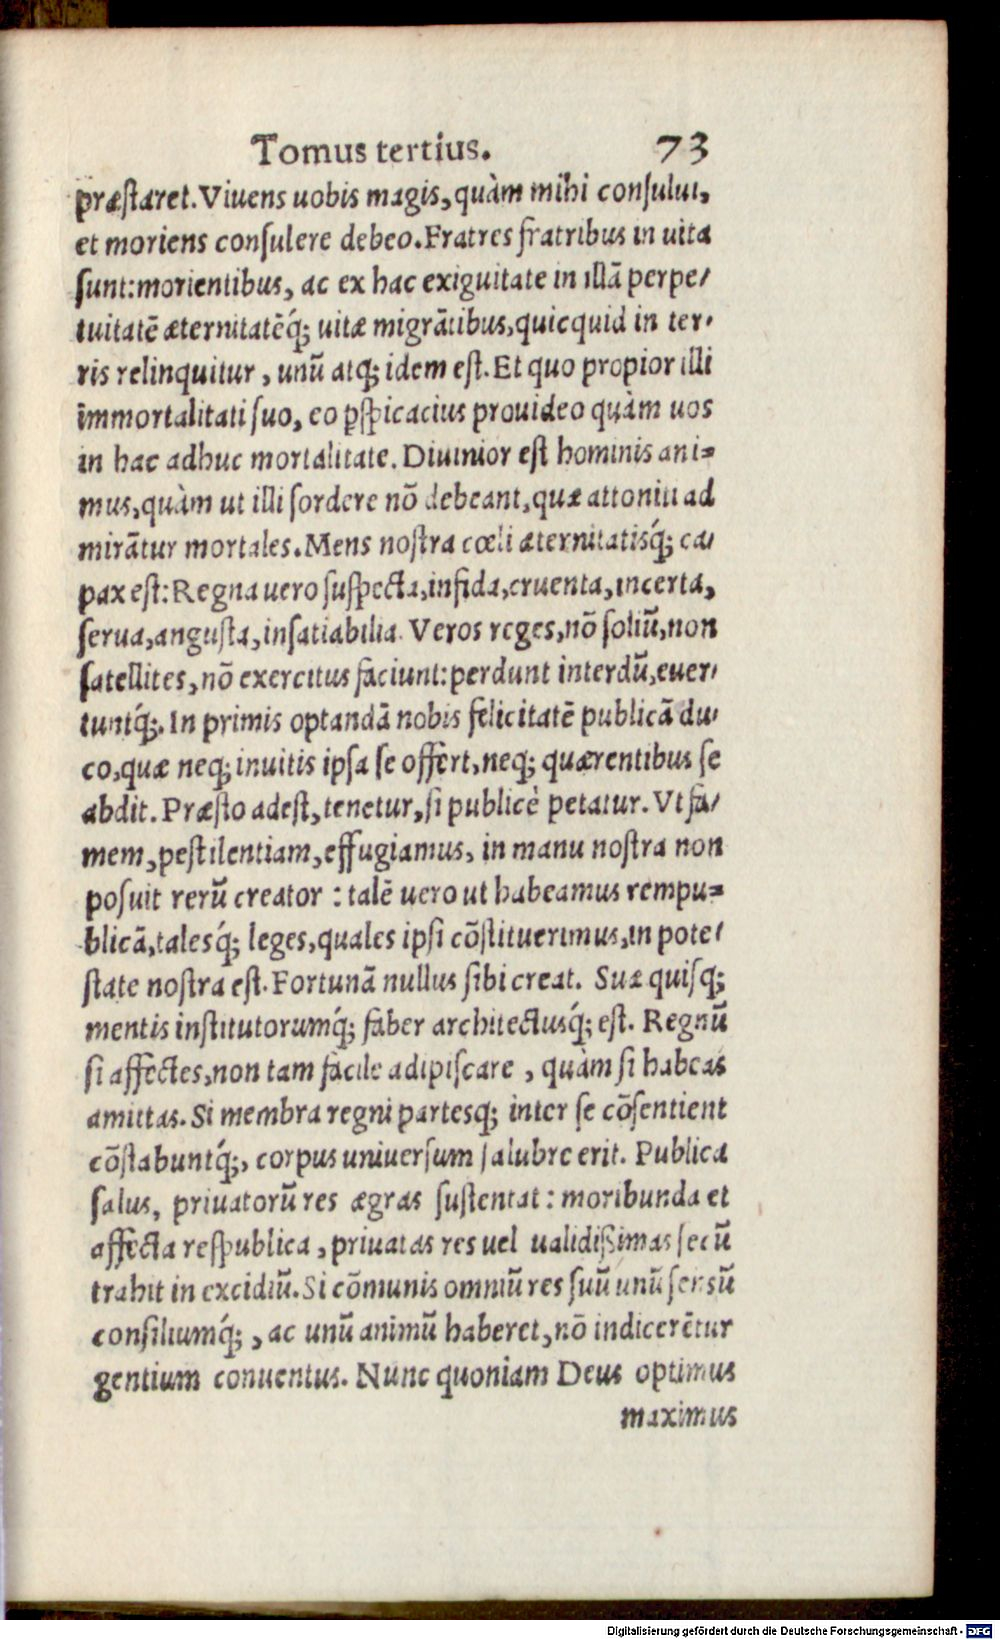 Tomus tertius. 73
præstaret. Viuens uobis magis, quàm mihi consului,
et moriens consulere debeo. Fratres fratribus in uita
sunt: morientibus, ac ex hac exiguitate in illã perpe/
tuitatẽ æternitatẽq́; uitæ migrãtibus, quicquid in ter/
ris relinquitur, unũ atq; idem est. Et quo propior illi
immortalitati suo, eo ꝑspicacius prouideo quàm uos
in hac adhuc mortalitate. Diuinior est hominis ani=
mus, quàm ut illi sordere nõ debeant, quæ attoniti ad
mirãtur mortales. Mens nostra cœli æternitatisq́; ca/
pax est: Regna uero suspecta, infida, cruenta, incerta,
serua, angusta, insatiabilia. Veros reges, nõ soliũ, non
satellites, nõ exercitus faciunt: perdunt interdũ, euer/
tuntq́;. In primis optandã nobis felicitatẽ publicã du/
co, quæ neq; inuitis ipsa se offert, neq; quærentibus se
abdit. Præsto adest, tenetur, si publicè petatur. Vt fa/
mem, pestilentiam, effugiamus, in manu nostra non
posuit rerũ creator : talẽ uero ut habeamus rempu=
blicã, talesq́; leges, quales ipsi cõstituerimus, in pote/
state nostra est. Fortunã nullus sibi creat. Suæ quisq;
mentis institutorumq́; faber architectusq́; est. Regnũ
si affectes, non tam facile adipiscare , quàm si habeas
amittas. Si membra regni partesq; inter se cõsentient
cõstabuntq́;, corpus uniuersum salubre erit. Publica
salus, priuatorũ res ægras sustentat : moribunda et
affecta respublica, priuatas res uel ualidißimas secũ
trahit in excidiũ. Si cõmunis omniũ res suũ unũ sensũ
consiliumq́; , ac unũ animũ haberet, nõ indicerẽtur
gentium conuentus. Nunc quoniam Deus optimus
maximus
Digitalisierung gefördert durch die Deutsche Forschungsgemeinschaft - DFG